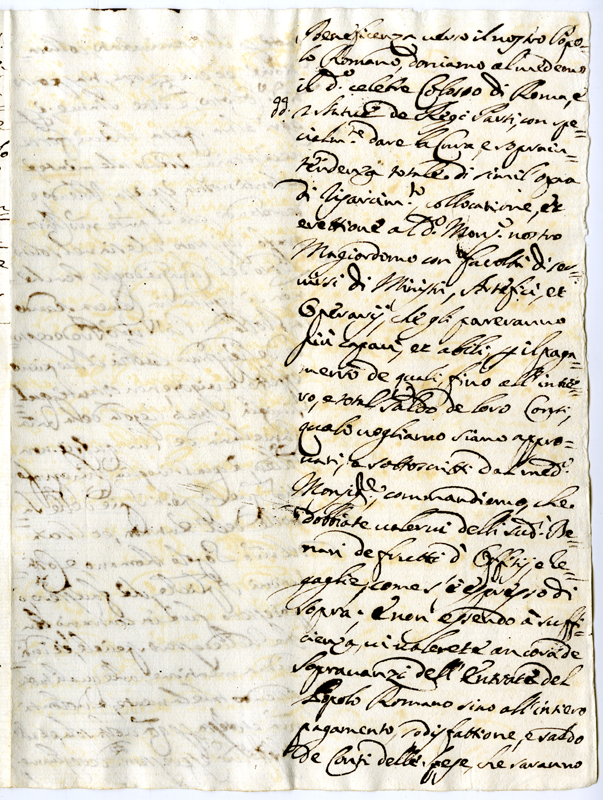 Beneficenza verso il nostro Popo-
lo Romano, doniamo al medemo
il d.º celebre Colosso di Roma, e
2 statue de Regi Parti, con spe-
cialm.te dare la Cura, e soprain-
tendenza totale di simil opra
di risarcim.to collocatione, et
erettione al d.º Mons.r nostro
Magiordomo con facoltà di ser-
virsi di Ministri, Artefici, et
Operarij, che gli pareranno
più capaci, et abili, p il paga-
mento de quali, fino all'inte-
ro, e total saldo de loro Conti,
quali vogliamo siano appro-
vati, e sottoscritti dal med.º
Mons.re, commandiamo, che
dobbiate valervi delli sud.i De-
nari de frutti d' Offitij e le-
gaglie, come s'è espresso di
sopra. E non essendo à suffi-
cienza, vi valerete ancora de
sopravanzi dell' Entrate del
Popolo Romano sino all'intiero
pagamento, sodisfattione, e saldo
de Conti delle spese, che saranno